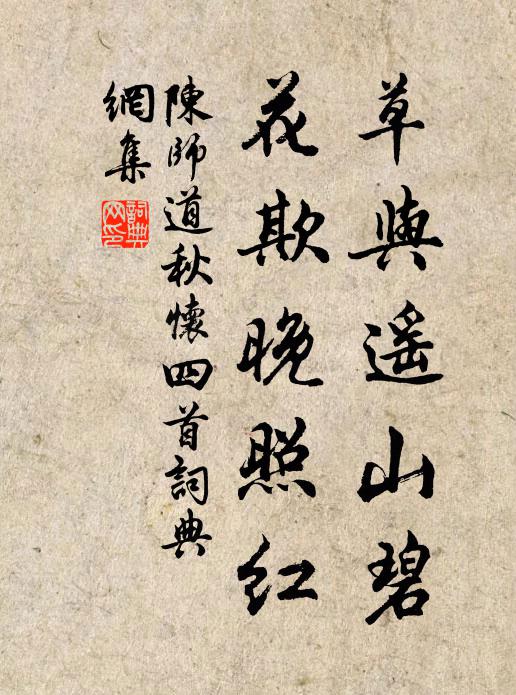 草與遥山碧
花欺晚照紅
陳師道秋懷四首詞典
網集
詞典
网印